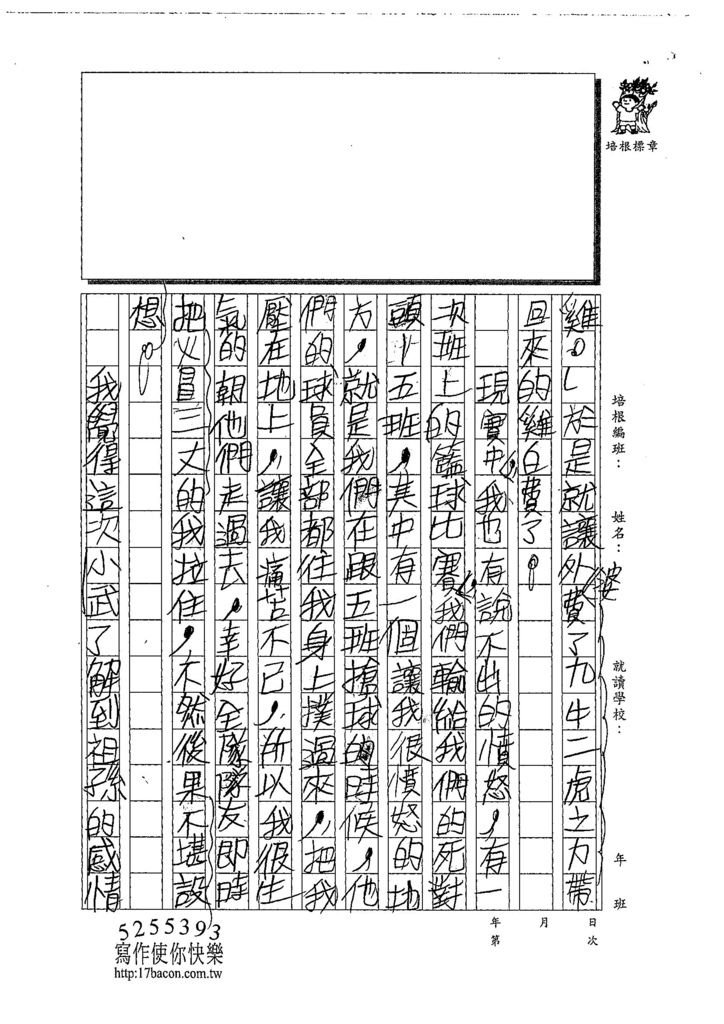 培根標章
培根編班：
姓名：
就讀學校：
年 班
年 月 日
第 次
雞。」於是就讓外婆費了九牛二虎之力帶
回來的雞白費了。
現實中，我也有說不出的憤怒，有一
次班上的籃球比賽，我們輸給我們的死對
頭－五班，其中有一個讓我很憤怒的地
方，就是我們在跟五班搶球的時候，他
們的球員全部都往我身上撲過來，把我
壓在地上，讓我痛苦不已，所以我很生
氣的朝他們走過去，幸好全隊隊友即時
把火冒三丈的我拉住，不然後果不堪設
想。
我覺得這次小武了解到祖孫的感情
5255393
寫作使你快樂
http:17bacon.com.tw